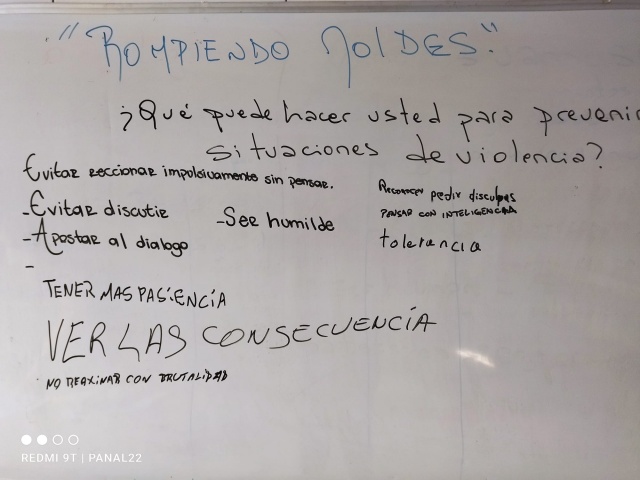 "ROMPIENDO MOLDES."
¿Qué puede hacer usted para prevenir
situaciones de violencia?
Evitar reccionar impulsivamente sin pensar.
-Evitar discutir
-Apostar al dialogo
-
-Ser humilde
Reconocer pedir disculpas
PENSAR CON INTELIGENCIA
tolerancia
TENER MAS PASIENCIA
VER LAS CONSECUENCÍA
NO REAXINAR CON BRUTALIDAD
REDMI 9T | PANAL22